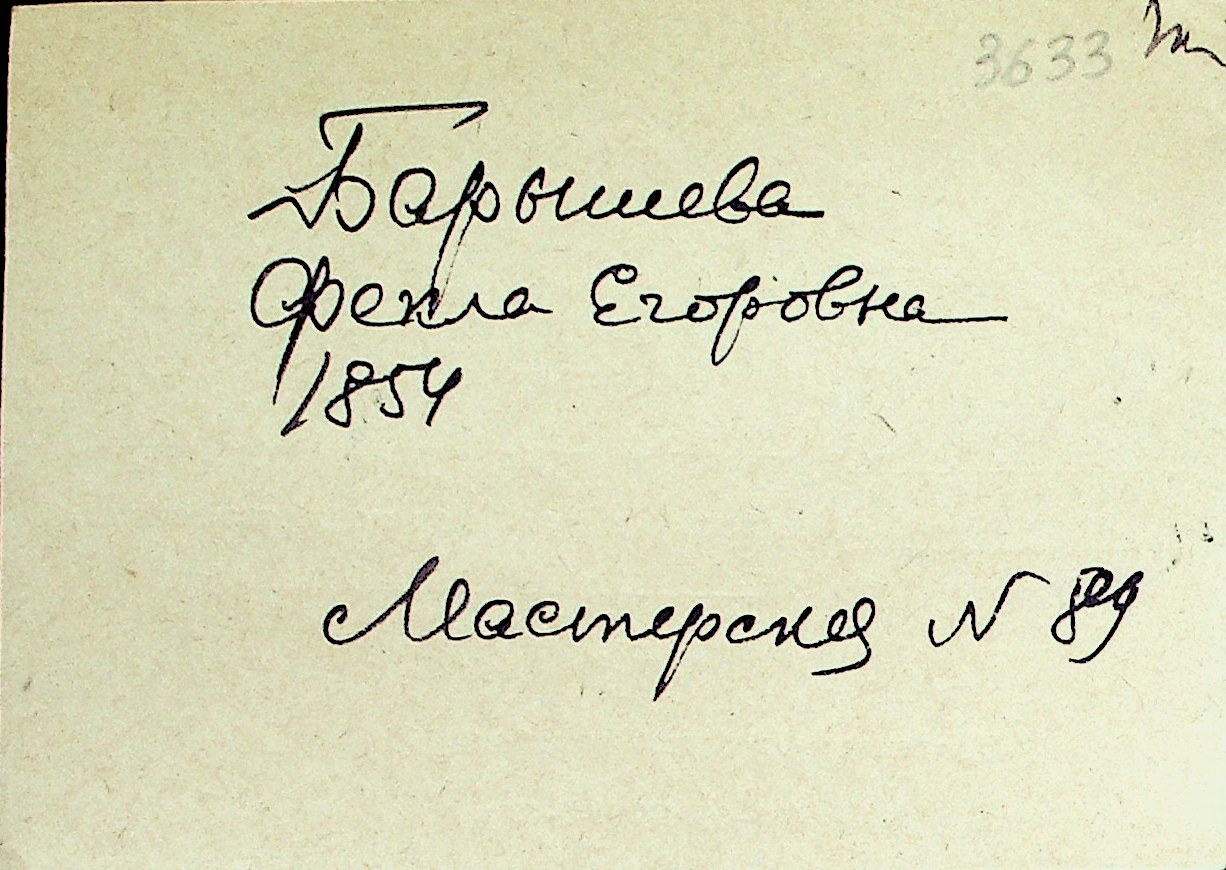 3633
Барышева
Фекла Егоровна
1854
Мастерская N 89